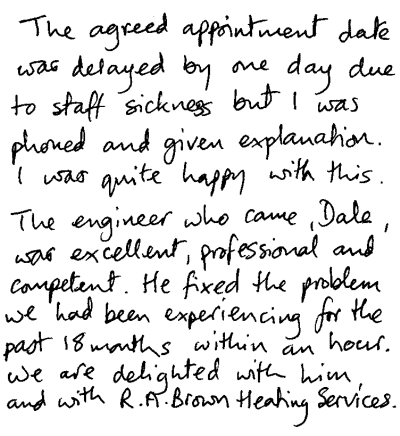 The agreed appointment date
was delayed by one day due
to staff sickness but I was
phoned and given explanation.
I was quite happy with this.
The engineer who came, Dale,
was excellent, professional and
competent. He fixed the problem
we had been experiencing for the
past 18 months within an hour.
We are delighted with him,
and with R.A.Brown Heating Services.